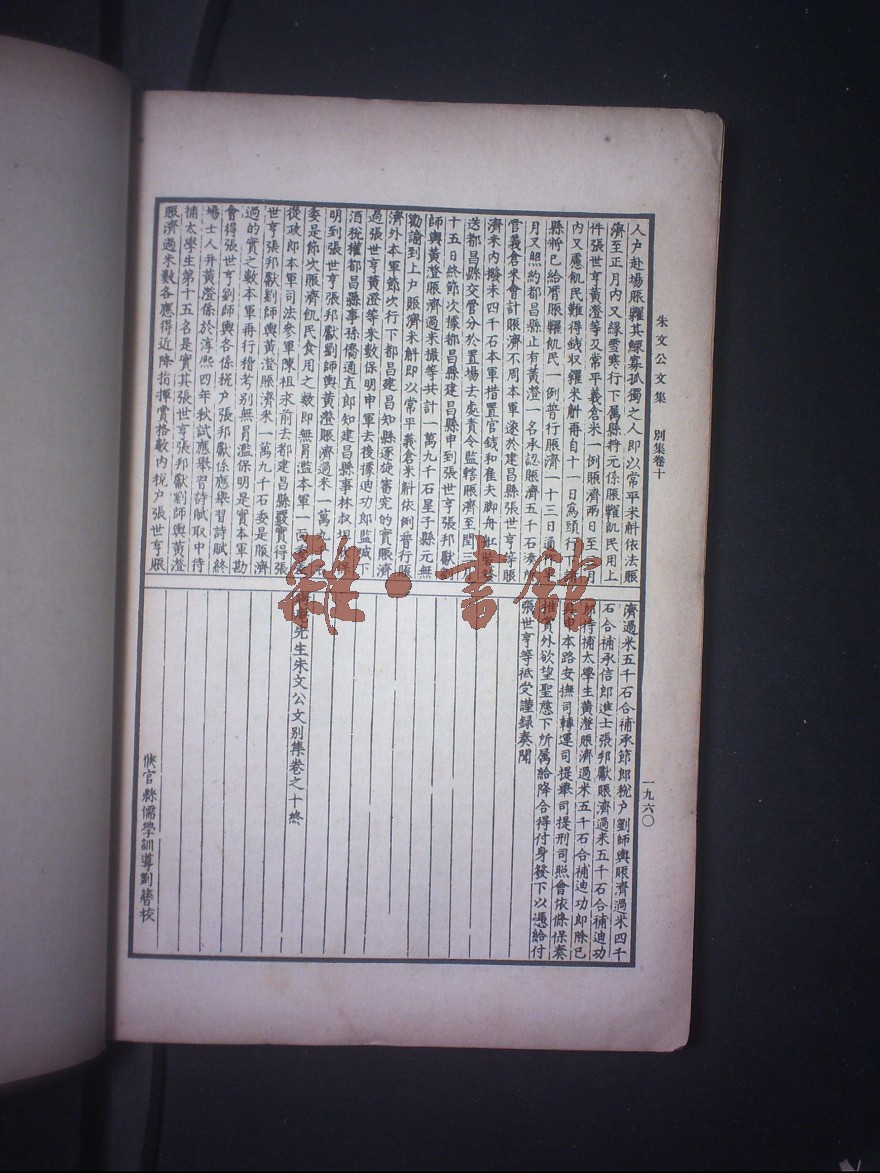 朱文公文集 別集卷十
一九六〇
人户赴場賑糶其鰥寡孤獨之人即以常平米斛依法賑
濟至正月內又緣雪寒行下屬縣將元係賑糶飢民用上
件張世亨黃澄等及常平義倉米一例賑濟兩日至 月
內又慮飢民難得錢収糴米斛再自十一日爲頭行下 
縣將已給曆賑糶飢民一例普行賑濟一十三日通 
月又照約都昌縣止有黃澄一名承認賑濟五千石 
管義倉米會計賑濟不周本軍遂於建昌縣張世亨等賑
濟米內撥米四千石本軍措置官錢和雇夫脚舟 裝發
送都昌縣交管分於置場去處責令監轄賑濟至閏三月
十五日終節次據都昌縣建昌縣申到張世亨張邦獻劉
師輿黃澄賑濟過米撮等共計一萬九千石星子縣元無
勸諭到上户賑濟米斛即以常平義倉米斛依例普行賑
濟外本軍節次行下都昌建昌知縣逐旋審究的實賑濟
過張世亨黃澄等米數保明申軍去後據迪功郎監城下
酒稅權都昌縣事孫僑通直郎知建昌縣事林叔坦 保
明到張世亨張邦獻劉師輿黃澄賑濟過米一萬九千石
委是節次賑濟飢民食用之數即無冐濫本軍一面委
從政郎本軍司法參軍陳祖永前去都建昌縣覈實得張
世亨張邦獻劉師輿黃澄賑濟米一萬九千石委是賑濟
過的實之數本軍再行稽考別無冐濫保明是實本軍勘
會得張世亨劉師輿各係稅户張邦獻係應舉習詩賦終
場士人并黃澄係於淳熙四年秋試應舉習詩賦取中待
補太學生第十五名是實其張世亨張邦獻劉師輿黃澄
賑濟過米數各應得近降指揮賞格數內稅户張世亨賑
濟過米五千石合補承節郎稅户劉師輿賑濟過米四千
石合補承信郎進士張邦獻賑濟過米五千石合補迪功
郎待補太學生黃澄賑濟過米五千石合補迪功郎除已
具申本路安撫司轉運司提舉司提刑司照會依條保奏
推賞外欲望聖慈下所屬給降合得付身發下以憑給付
張世亨等祗受謹録奏聞
晦庵先生朱文公文別集卷之十終
候官縣儒學訓導劉簪校
雜·書館